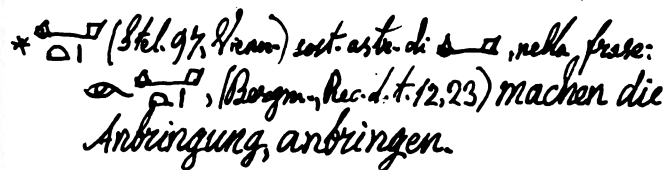 * (Stel. 97, Vienn.) sost. astr. di , nella frase:
, (Bergm., Rec. d. t. 12, 23) machen die
Anbringung, anbringen.